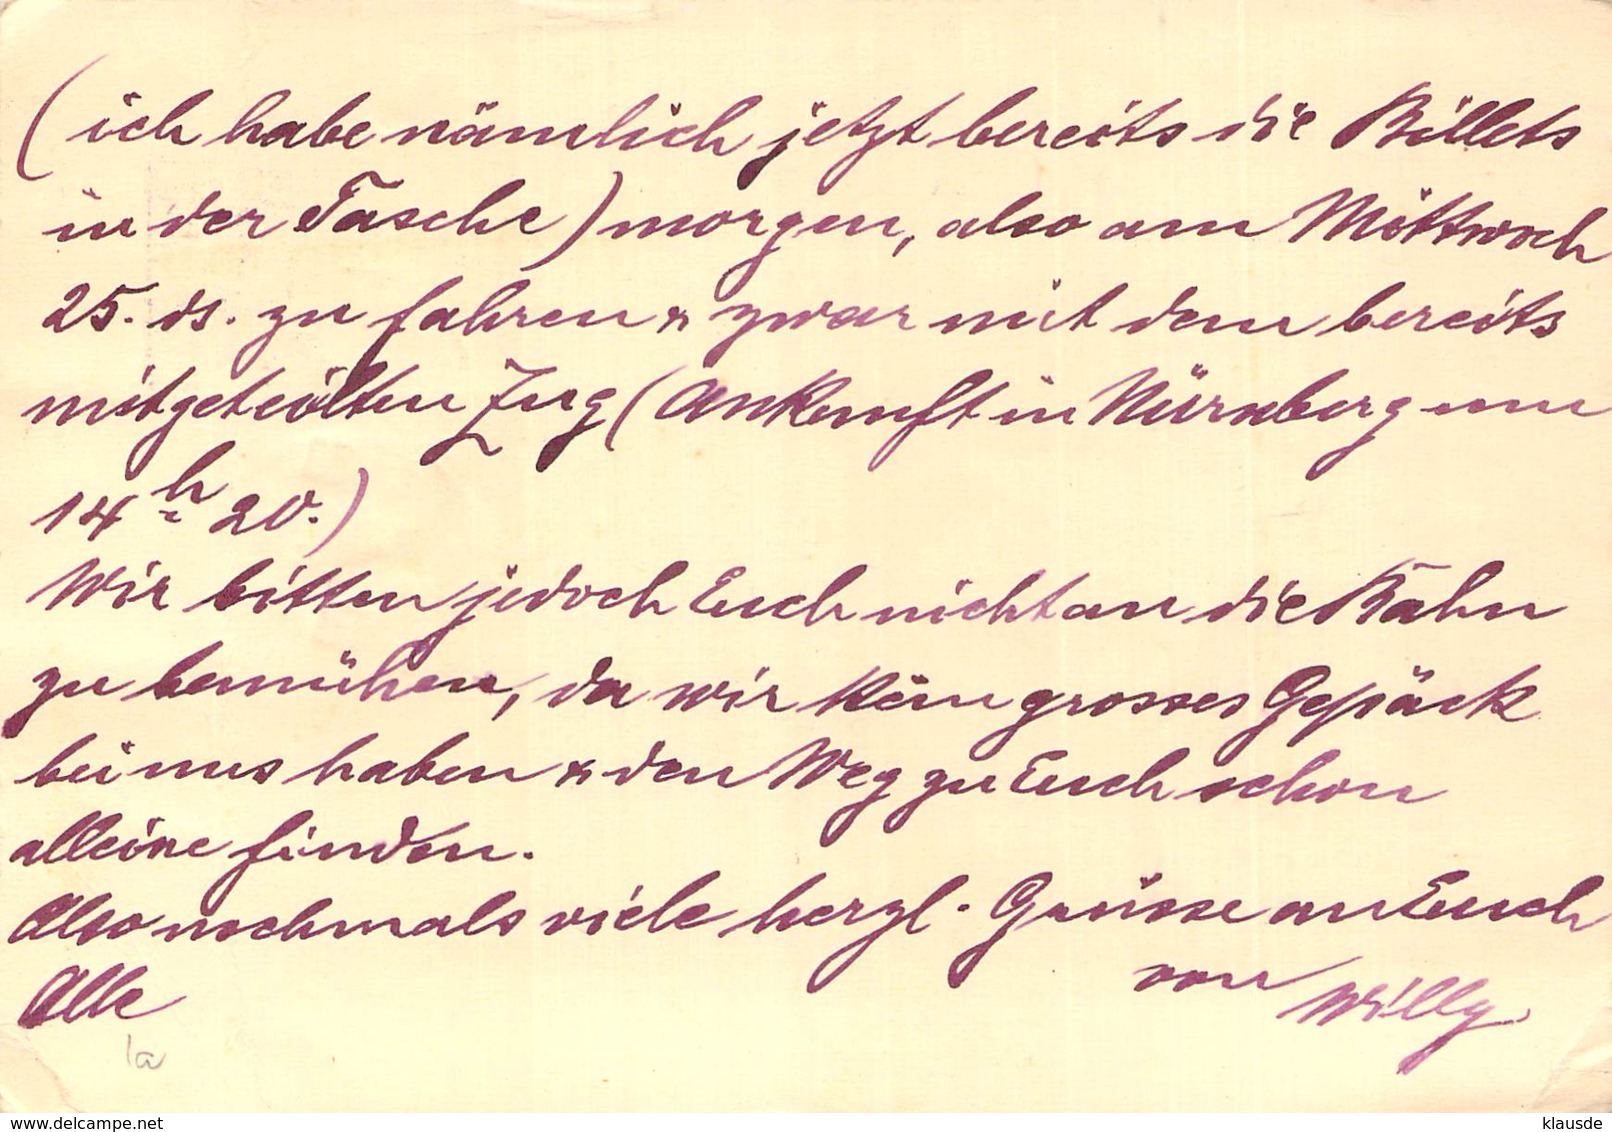 (ich habe nämlich jetzt bereits die Billets
in der Tasche) morgen, also am Mittwoch
25. ds. zu fahren & zwar mit dem bereits
mitgeteilten Zug (Ankunft in Nürnberg um
14 h 20.)
Wir bitten jedoch Euch nicht an die Bahn
zu bemühen, da wir kein grosses Gepäck
bei uns haben & den Weg zu Euch schon
alleine finden.
Also nochmals viele herzl. Grüsse an Euch
Alle
von Willy
1a
delcampe.net
klausde